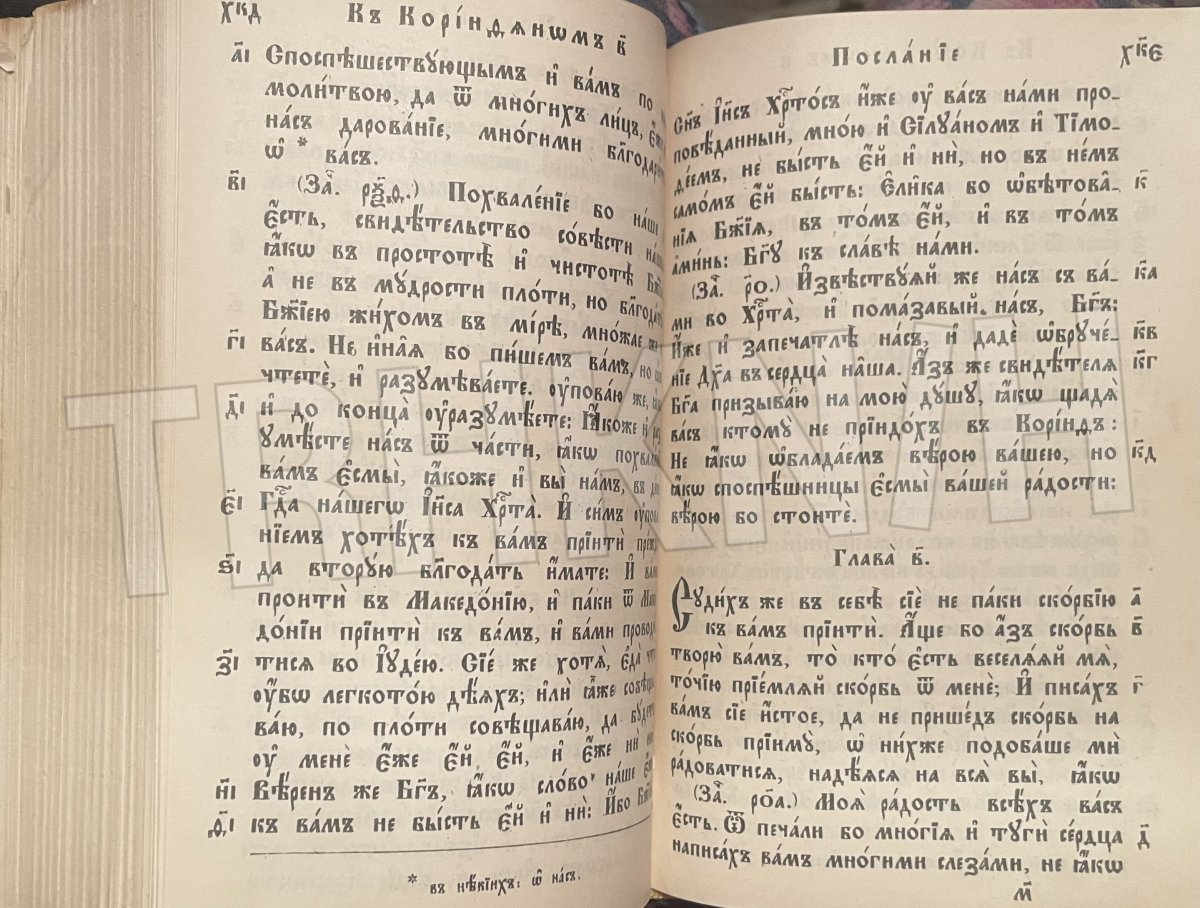 хк҃д Къ Корі́нѳѧнѡмъ в҃
а҃і Споспѣшествꙋ́ющымъ и҆ ва́мъ по
моли́твою, да ѿ мно́гихъ ли́цъ,
на́съ дарова́нїе, мно́гими бл҃годари́тсѧ
ѡ҆ * ва́съ.
в҃і (За҄. рѯ҃д.) Похвале́нїе бо на́ше
є҆́сть, свидѣ́тельство со́вѣсти на́шеѧ
ꙗ҆́кѡ въ простотѣ̀ и҆ чистотѣ̀ Бж҃їей,
а҆ не въ мꙋ́дрости пло́ти, но бл҃года́тїю
Бж҃їею жи́хомъ въ мі́рѣ, мно́жае же
г҃і ва́съ. Не и҆́наѧ бо пи́шемъ ва́мъ, но
чтетѐ, и҆ разꙋмѣва́ете. ᲂу҆пова́ю же,
д҃і и҆ до конца̀ ᲂу҆разꙋмѣ́ете: Ꙗ҆́коже и҆ раз
ꙋмѣ́сте на́съ ѿ ча́сти, ꙗ҆́кѡ похвале́нїе
ва́мъ є҆смы̀, ꙗ҆́коже и҆ вы̀ на́мъ, въ де́нь
є҃і Гдⷭ҇а на́шегѡ І҆и҃са Хрⷭ҇та̀. И҆ си́мъ ᲂу҆пова́
нїемъ хотѣ́хъ къ ва́мъ прїитѝ пре́жде,
ѕ҃і да вторꙋ́ю бл҃года́ть и҆́мате: И҆ ва́ми
проитѝ въ Македо́нїю, и҆ па́ки ѿ Маке
до́нїи прїитѝ къ ва́мъ, и҆ ва́ми проводи́
з҃і тисѧ во І҆ꙋде́ю. Сїе́ же хотѧ̀, є҆да̀ что̀
ᲂу҆́бѡ легкото́ю дѣ́ѧхъ; и҆лѝ ꙗ҆̀же совѣща
ва́ю, по пло́ти совѣщава́ю, да бꙋ́детъ
ᲂу҆ менѐ є҆́же є҆́й є҆́й, и҆ є҆́же нѝ нѝ
и҃і Вѣ́ренъ же Бг҃ъ, ꙗ҆́кѡ сло́во* на́ше є҆́же
ѳ҃і къ ва́мъ не бы́сть є҆́й и҆ нѝ: И҆́бо Бж҃їй
* въ нѣ́кїихъ: ѡ҆ на́съ.
Посла́нїе хк҃є
сн҃ъ І҆и҃съ Хрⷭ҇то́съ и҆́же ᲂу҆ ва́съ на́ми про-
повѣ́данный, мно́ю и҆ Сїлꙋа́номъ и҆ Тїмо-
ѳе́емъ, не бы́сть є҆́й и҆ нѝ, но въ не́мъ
само́мъ є҆́й бы́сть: Є҆ли́ка бо ѡ҆бѣтова̑- к҃
нїѧ Бж҃їѧ, въ то́мъ є҆́й, и҆ въ то́мъ
а҆ми́нь: Бг҃ꙋ къ сла́вѣ на́ми.
(За҄. р҃о.) И҆звѣствꙋ́ѧй же на́съ съ ва́- к҃а
ми во Хрⷭ҇та̀, и҆ пома́завый на́съ, Бг҃ъ:
И҆́же и҆ запечатлѣ̀ на́съ, и҆ дадѐ ѡ҆брꙋче́- к҃в
нїе Дх҃а въ сердца̀ на̑ша. А҆́зъ же свидѣ́телѧ к҃г
Бг҃а призыва́ю на мою̀ дꙋ́шꙋ, ꙗ҆́кѡ щадѧ̀
ва́съ ктомꙋ̀ не прїидо́хъ въ Корі́нѳъ:
Не ꙗ҆́кѡ ѡ҆блада́емъ вѣ́рою ва́шею, но к҃д
ꙗ҆́кѡ споспѣ̑шницы є҆смы̀ ва́шей ра́дости:
вѣ́рою бо стоитѐ.
Глава̀ в҃.
Сꙋди́хъ же въ себѣ̀ сїѐ не па́ки ско́рбїю а҃
къ ва́мъ прїитѝ. А҆́ще бо а҆́зъ ско́рбь в҃
творю̀ ва́мъ, то̀ кто̀ є҆́сть веселѧ́ѧй мѧ̀,
то́чїю прїе́млѧй ско́рбь ѿ менѐ; И҆ писа́хъ г҃
ва́мъ сїѐ и҆́стое, да не прише́дъ ско́рбь на
ско́рбь прїимꙋ̀, ѡ҆ ни́хже подоба́ше мѝ
ра́доватисѧ, надѣ́ѧсѧ на всѧ̀ вы̀, ꙗ҆́кѡ
(За҄. ро҃а.) Моѧ̀ ра́дость всѣ́хъ ва́съ
є҆́сть. Ѿ печа́ли бо мно́гїѧ и҆ тꙋгѝ се́рдца д҃
написа́хъ ва́мъ мно́гими слеза́ми, не ꙗ҆́кѡ
м҃